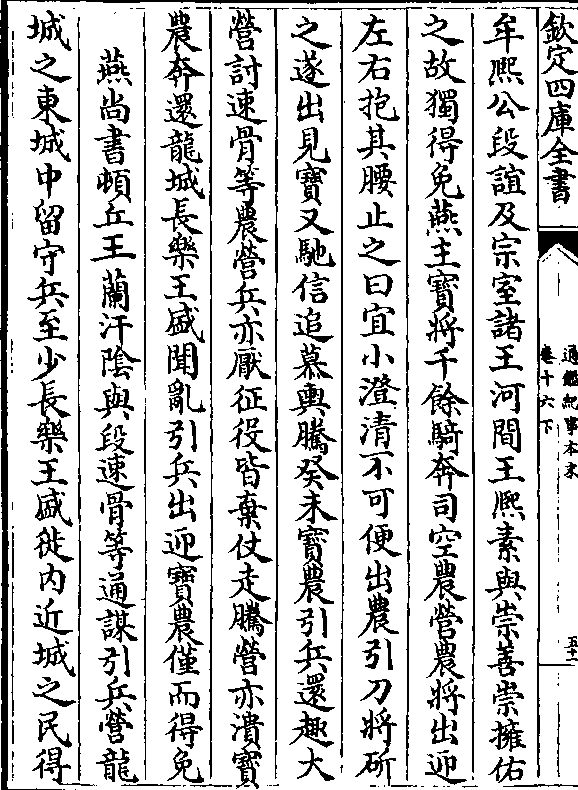 欽定四庫全書
通鑑紀事本末
卷十六下
五十一
牟熙公段誼及宗室諸王河間王熙素與崇善崇擁佑
之故獨得免燕主寶將千餘騎奔司空農營農將出迎
左右抱其腰止之曰宜小澄清不可便出農引刀將斫
之遂出見寶又馳信追慕輿騰癸未寶農引兵還趣大
營討速骨等農營兵亦厭征役皆棄仗走騰營亦潰寶
農奔還龍城長樂王盛聞亂引兵出迎寶農僅而得免
燕尚書頓丘王蘭汗陰與段速骨等通謀引兵營龍
城之東城中留守兵至少長樂王盛徙内近城之民得